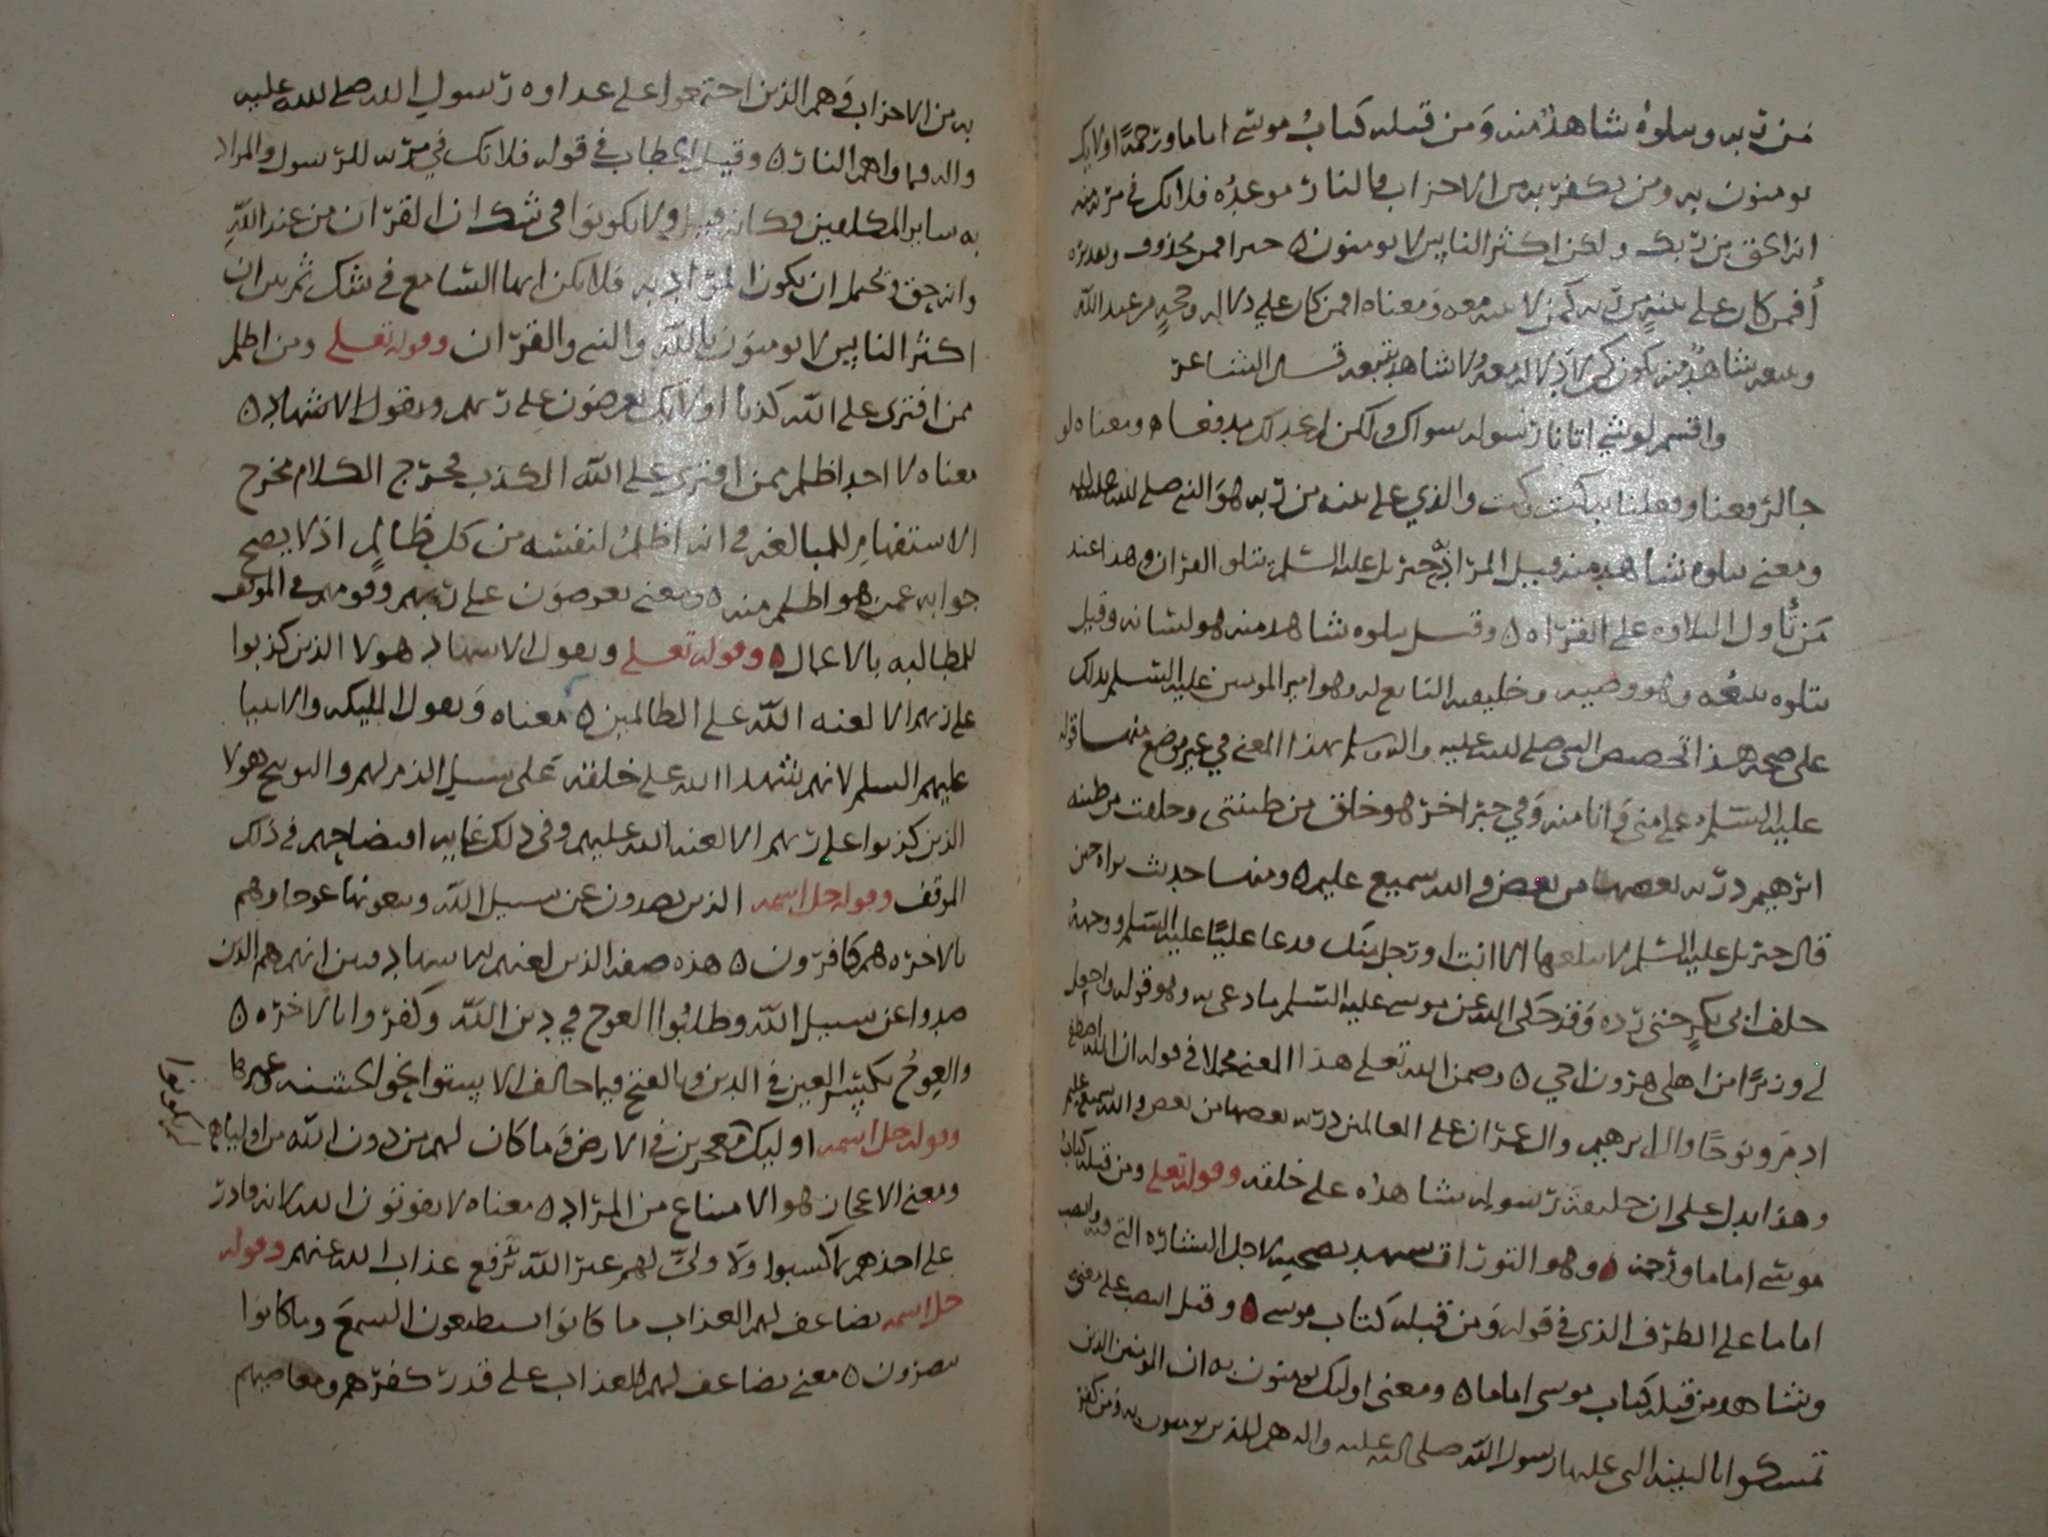 من ربه ويتلوه شاهد منه ومن قبله كتاب موسى اماما ورحمة اولايك
يومنون به ومن يكفر به من الاحزاب فالنار موعده فلا تك في مرية منه
انه الحق من ربك ولكن اكثر الناس لا يومنون ه خبر افمن محذوف وتقديره
أفمن كان على بينة من ربه كمن لا بينة معه ومعناه افمن كان على دلالة وحجة من عند الله
ويتبعه شاهد منه يكون كمن لا دلالة معه ولا شاهد يتبعه قال الشاعر
واقسم لو شي اتانا رسوله سواك ولكن لم نجد لك مدفعا ه ومعناه لو
جا لدفعنا وفعلنا به كيت وكيت والذي على بينه من ربه هو النبي صلى الله عليه
ومعنى يتلوه شاهد منه قيل المراد به جبريل عليه السلم يتلو القران وهذا عند
من تأول التلاوه على القراه ه وقيل يتلوه شاهد منه هو لسانه وقيل
يتلوه يتبعه وهو وصيه وخليفته التابع له وهو امير المومنين عليه السلم يدلك
على صحة هذا تخصيص النبي صلى الله عليه واله وسلم بهذا المعنى في غير موضع منها قوله
عليه السلم علي مني وانا منه وفي خبر اخر هو خلق من طينتي وخلقت من طينه
ابرهيم ذريه بعضها من بعض والله سميع عليم ه ومنها حديث براه حين
قال جبريل عليه السلم لا يبلغها الا انت او رجل منك فدعا عليا عليه السلم ووجهه
خلف ابي بكر حتى رده وقد حكى الله عن موسى عليه السلم ما دعى به وهو قوله واجعل
لي وزيرا من اهلي هرون اخي ه وضمن الله تعلى هذا المعنى مجملا في قوله ان الله اصطفى
ادم ونوحا وال ابرهيم وال عمران على العالمين ذريه بعضها من بعض والله سميع عليم
وهذا يدل على ان خليفة رسوله شاهده على خلقه وقوله تعلى ومن قبله كتاب
موسى اماما ورحمه ه وهو التوراة تشهد بصحته لاجل البشاره التي فيه وانتصب
اماما على الظرف الذي في قوله ومن قبله كتاب موسى ه وقيل انتصب على معنى
وشاهد من قبله كتاب موسى اماما ه ومعنى اوليك يومنون به ان المومنين الذين
تمسكوا بالبينه التي عليها رسول الله صلى الله عليه واله هم الذين يومنون به ومن يكفر
به من الاحزاب ه فهم الذين اجتمعوا على عداوه رسول الله صلى الله عليه
واله فماواهم النار ه وقيل الخطاب في قوله فلا تك في مريه للرسول والمراد
به ساير المكلفين فكانه قيل ولا تكونوا في شك ان القران من عند الله
وانه حق ويحتمل ان يكون المراد به فلا تكن ايها السامع في شك ثم بين ان
اكثر الناس لا يومنون بالله والنبي والقران وقوله تعلى ومن اظلم
ممن افترى على الله كذبا اولايك يعرضون على ربهم ويقول الاشهاد ه
معناه لا احد اظلم ممن افترى على الله الكذب فخرج الكلام مخرج
الاستفهام للمبالغه في انه اظلم لنفسه من كل ظالم اذ لا يصح
جوابه عمن هو اظلم منه ه ومعنى يعرضون على ربهم وقوفهم في الموقف
للمطالبه بالاعمال ه وقوله تعلى ويقول الاشهاد هولا الذين كذبوا
على ربهم الا لعنه الله على الظالمين ه معناه ويقول المليكه والانبيا
عليهم السلم لانهم شهدا الله على خلقه على سبيل الذم لهم والتوبيخ هولا
الذين كذبوا على ربهم الا لعنه الله عليهم وفي ذلك غايه افتضاحهم في ذلك
الموقف وقوله جل اسمه الذين يصدون عن سبيل الله ويبغونها عوجا وهم
بالاخره هم كافرون ه هذه صفه الذين لعنهم الاشهاد فبين انهم هم الذين
صدوا عن سبيل الله وطلبوا العوج في دين الله وكفروا بالاخره ه
والعوج بكسر العين في الدين وبالفتح فيما خالف الاستوا نحو الخشبه وغيرها
وقوله جل اسمه اوليك معجزين في الارض وما كان لهم من دون الله من اولياهم
ومعنى الاعجاز هو الامتناع من المراد ه معناه لا يفوتون الله لانه قادر
على اخذهم بما كسبوا ولا ولي لهم غير الله يرفع عذاب الله عنهم وقوله
جل اسمه يضاعف لهم العذاب ما كانوا يستطيعون السمع وما كانوا
يبصرون ه معنى يضاعف لهم العذاب على قدر كفرهم ومعاصيهم